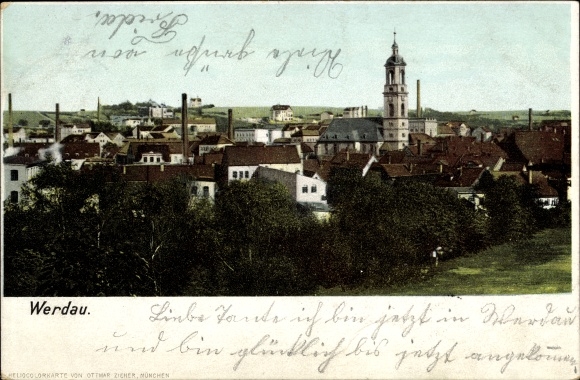 Viele Grüße von
Frieda.
Werdau.
Liebe Tante ich bin jetzt in Werdau
und bin glücklich bis jetzt angekommen
HELIOCOLORKARTE VON OTTMAR ZIEHER, MÜNCHEN